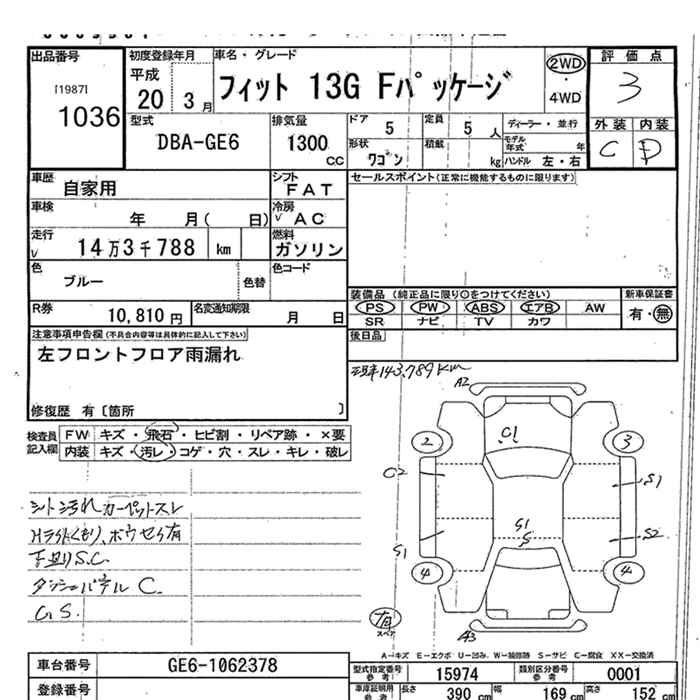 出品番号
[1987]
1036
初度登録年月
平成
20 3月
車名・グレード
フィット 13G Fパッケージ
2WD
4WD
評価点
3
外装 内装
C D
型式
DBA-GE6
排気量
1300
CC
ドア
5
定員
5 人
ディーラー・並行
モデル年式 年
形状
ワゴン
積載
kg
ハンドル 左・右
車歴
自家用
シフト
FAT
セールスポイント(正常に機能するものに限ります)
車検
年 月( 日)
冷房
AC
走行
14万3千788 km
燃料
ガソリン
色
ブルー
色替
色コード
R券
10,810 円
名変通知期限
月 日
装備品 (純正品に限り○をつけてください)
PS PW ABS エアB AW
SR ナビ TV カワ
新車保証書
有・無
後日品
注意事項申告欄(不具合内容等は具体的に記入して下さい)
左フロントフロア雨漏れ
修復歴 有〔箇所 〕
現車143,789Km
検査員
記入欄
FW キズ・飛石・ヒビ割・リペア跡・×要
内装 キズ・汚レ・コゲ・穴・スレ・キレ・破レ
シート汚れ カーペットスレ
Hライトくもり、ボウセイ有
下廻りS.C.
ダッシュパネル C.
G S.
A2
C1
2
3
C2
S1
S1
S
S1
S2
4
4
有
スペア
A3
A-キズ E-エクボ U-凹み W-補修跡 S-サビ C-腐食 XX-交換済
車台番号
GE6-1062378
登録番号
型式指定番号
参考
15974
類別区分番号
参考
0001
車庫証明用
参考
長さ
390 cm
幅
169 cm
高さ
152 cm